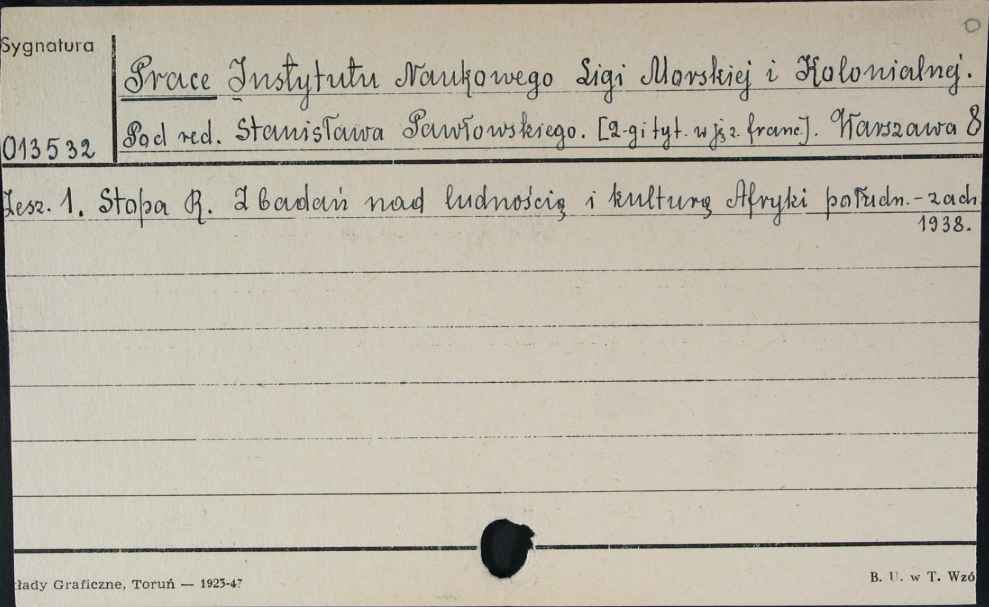 Sygnatura
Prace Instytutu Naukowego Ligi Morskiej i Kolonialnej.
013532 Pod red. Stanisława Pawłowskiego. [2-gi tyt. w jęz. franc]. Warszawa 8
Zesz. 1. Stopa R. Z badań nad ludnością i kulturą Afryki połudn.-zach
1938.
łady Graficzne, Toruń — 1925-47
B. U. w T. Wzó